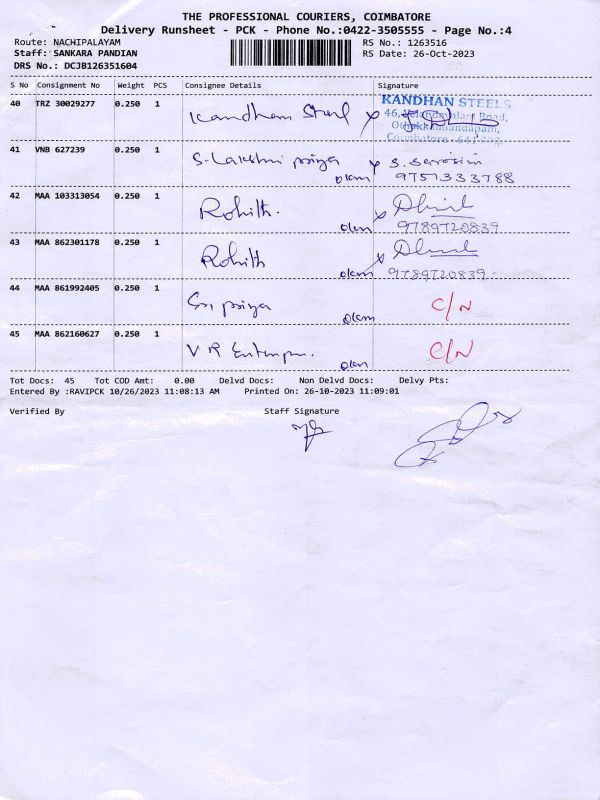 THE PROFESSIONAL COURIERS, COIMBATORE
Delivery Runsheet - PCK - Phone No.:0422-3505555 - Page No.:4
Route: NACHIPALAYAM RS No.: 1263516
Staff: SANKARA PANDIAN RS Date: 26-Oct-2023
DRS No.: DCJB126351604
S No Consignment No Weight PCS Consignee Details Signature
40 TRZ 30029277 0.250 1 Kandhan Steel x KANDHAN STEELS
Road,
Coimbatore
41 VNB 627239 0.250 1 S. Lakshmi priya x S. Sarojini
okm 9751333788
42 MAA 103313054 0.250 1 Rohith. x
okm 9789720839
43 MAA 862301178 0.250 1 Rohith x
okm 9789720839
44 MAA 861992405 0.250 1 Sri priya C/N
okm
45 MAA 862160627 0.250 1 V R C/N
okm
Tot Docs: 45 Tot COD Amt: 0.00 Delvd Docs: Non Delvd Docs: Delvy Pts:
Entered By :RAVIPCK 10/26/2023 11:08:13 AM Printed On: 26-10-2023 11:09:01
Verified By Staff Signature